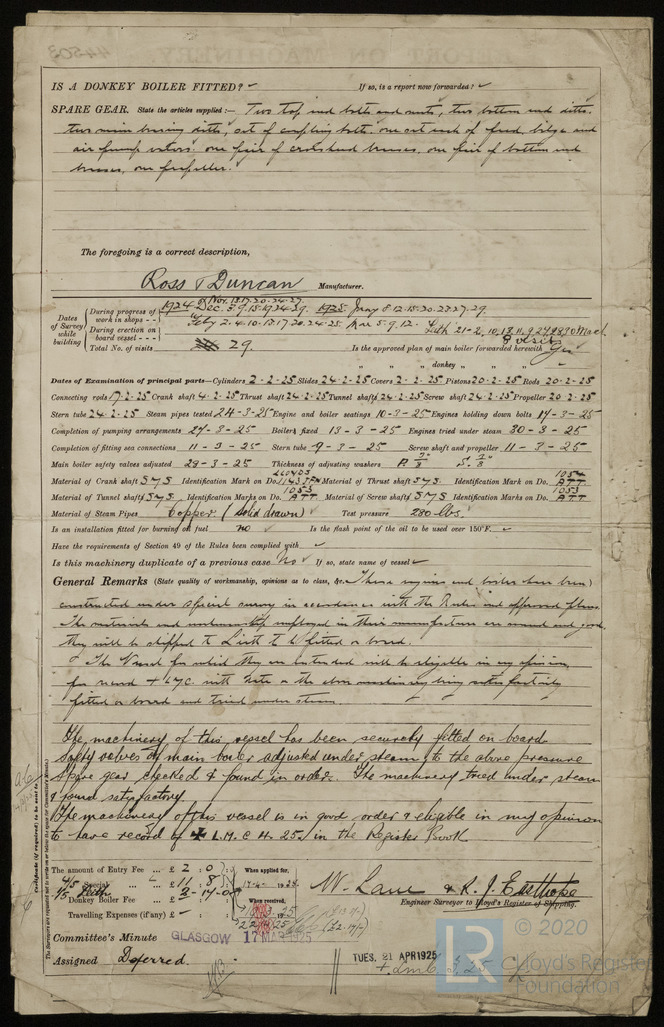 IS A DONKEY BOILER FITTED? If so, is a report now forwarded?
SPARE GEAR. State the articles supplied:— Two top end bolts and nuts, two bottom end ditto,
two main bearing ditto, set of coupling bolts, one set each of feed, bilge and
air pump valves, one pair of crosshead brasses, one pair of bottom end
brasses, one propeller.
The foregoing is a correct description,
Ross & Duncan Manufacturer.
Dates of Survey while building
During progress of work in shops - - 1924 Nov. 13.17.20.24.27. Dec. 1925 Jany 8.12.15.20.22.27.29.
During erection on board vessel - - - Feby 2.4.10.17.20.24.25 Mar 5.9.12. Leith
Total No. of visits 29. Is the approved plan of main boiler forwarded herewith Yes
" " " donkey " " "
Dates of Examination of principal parts—Cylinders 2-2-25 Slides 24-2-25 Covers 2-2-25 Pistons 20-2-25 Rods 20-2-25
Connecting rods 17-2-25 Crank shaft 4-2-25 Thrust shaft 24-2-25 Tunnel shafts 24-2-25 Screw shaft 24-2-25 Propeller 20-2-25
Stern tube 24-2-25 Steam pipes tested 24-3-25 Engine and boiler seatings 10-3-25 Engines holding down bolts 17-3-25
Completion of pumping arrangements 27-3-25 Boilers fixed 13-3-25 Engines tried under steam 30-3-25
Completion of fitting sea connections 11-3-25 Stern tube 9-3-25 Screw shaft and propeller 11-3-25
Main boiler safety valves adjusted 28-3-25 Thickness of adjusting washers
Material of Crank shaft S.M.S Identification Mark on Do. LLOYDS Material of Thrust shaft S.M.S. Identification Mark on Do. 1054 ATT
Material of Tunnel shafts S.M.S. Identification Marks on Do. 1053 ATT. Material of Screw shafts S.M.S Identification Marks on Do. 1053 ATT
Material of Steam Pipes Copper (solid drawn) Test pressure 280 lbs.
Is an installation fitted for burning oil fuel no Is the flash point of the oil to be used over 150°F.
Have the requirements of Section 49 of the Rules been complied with
Is this machinery duplicate of a previous case No If so, state name of vessel
General Remarks (State quality of workmanship, opinions as to class, &c. These engines and boiler have been)
constructed under special survey in accordance with the Rules and approved plans.
The materials and workmanship employed in their manufacture are sound and good,
they will be shipped to Leith to be fitted on board.
The Vessel for which they are intended will be eligible in my opinion,
for record + L.M.C. with date on the above machinery being satisfactorily
fitted on board and tried under steam.
The machinery of this vessel has been securely fitted on board
safety valves of main boiler adjusted under steam to the above pressure
Spare gear checked & found in order. The machinery tried under steam
& found satisfactory
The machinery of this vessel is in good order & eligible in my opinion
to have record of + L.M.C 4. 25. in the Register Book
The amount of Entry Fee ... £ 2 : 0 : When applied for,
4/5 Special ... £ 11 : 8 :
1/5 Leith
Donkey Boiler Fee ... £ 2-17-0 When received,
Travelling Expenses (if any) £ -
W. Lane & R. J. Easthope
Engineer Surveyor to Lloyd's Register of Shipping.
Committee's Minute GLASGOW 17 MAR 1925
TUES. 21 APR 1925
Assigned Deferred.
+ LMC 3.25
© 2020
LR
Lloyd's Register
Foundation